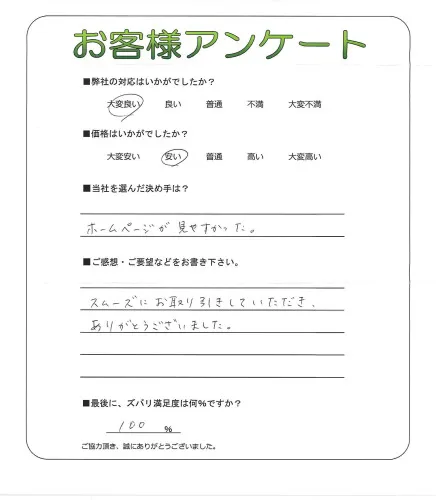 お客様アンケート
■弊社の対応はいかがでしたか？
大変良い 良い 普通 不満 大変不満
■価格はいかがでしたか？
大変安い 安い 普通 高い 大変高い
■当社を選んだ決め手は？
ホームページが見やすかった。
■ご感想・ご要望などをお書き下さい。
スムーズにお取り引きしていただき、
ありがとうございました。
■最後に、ズバリ満足度は何%ですか？
100 %
ご協力頂き、誠にありがとうございました。